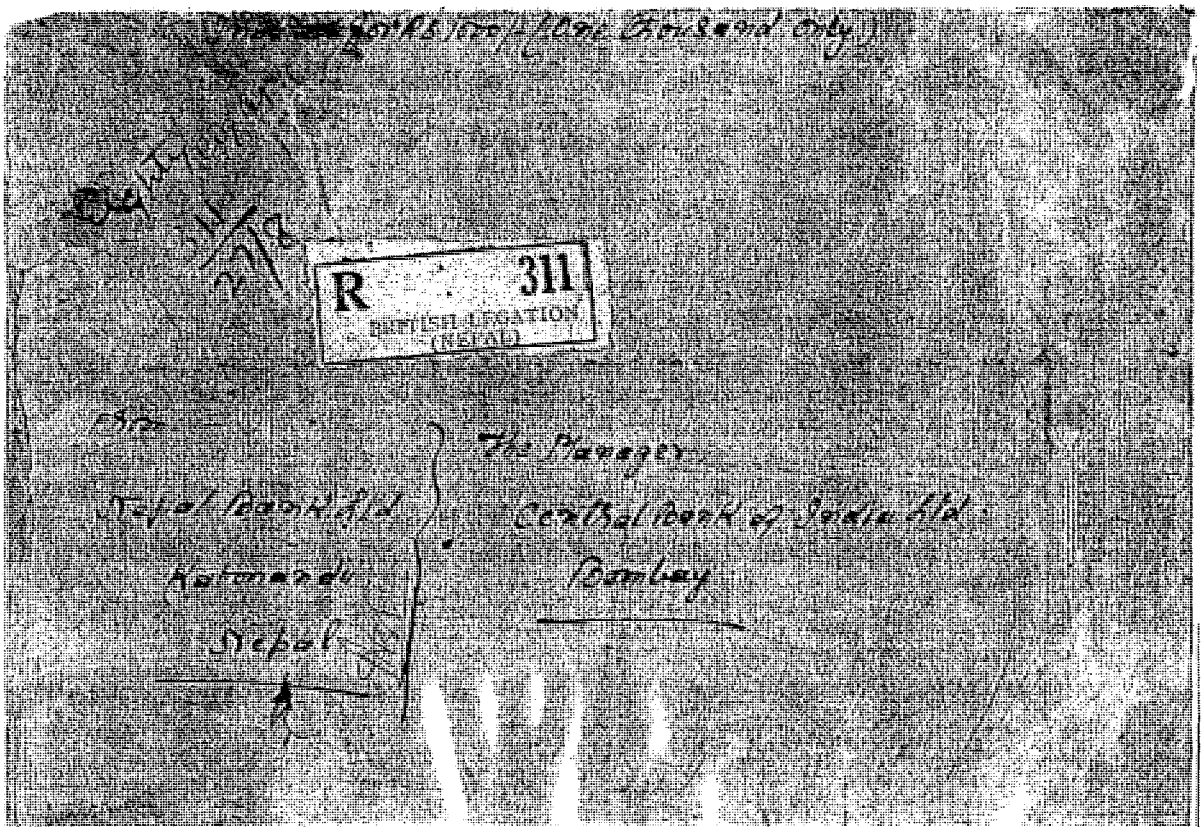 for Rs 1000/- (One thousand only)
11
27/8
R 311
BRITISH LEGATION
(NEPAL)
From
Nepal Bank Ltd
Katmandu
Nepal
The Manager
Central Bank of India Ltd.
Bombay